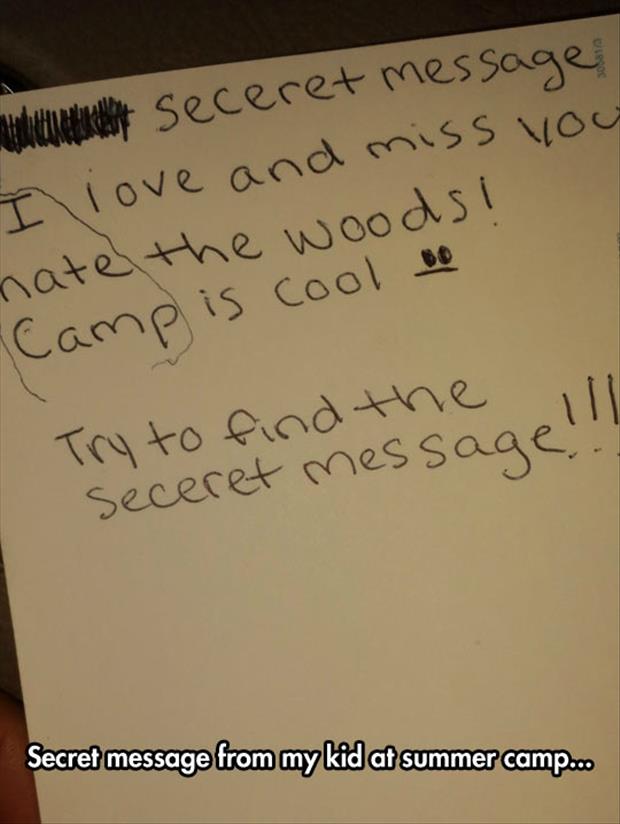 seceret message
I love and miss you
hate the woods!
Camp is cool
Try to find the
seceret message!!!
30681/3
Secret message from my kid at summer camp...